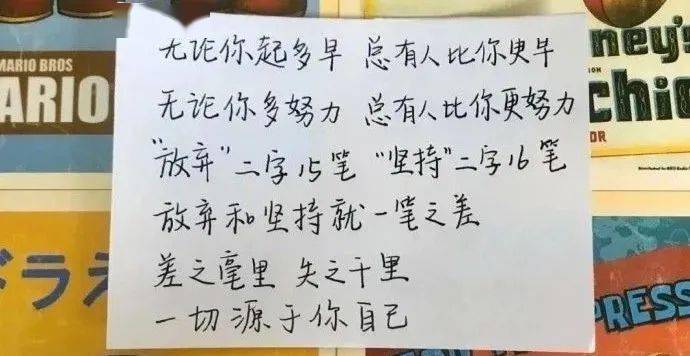 无论你起多早 总有人比你更早
无论你多努力 总有人比你更努力
"放弃"二字15笔 "坚持"二字16笔
放弃和坚持就一笔之差
差之毫厘 失之千里
一切源于你自己
MARIO BROS
ARIO
ney's
chio
OR
ドラえ
PRESS